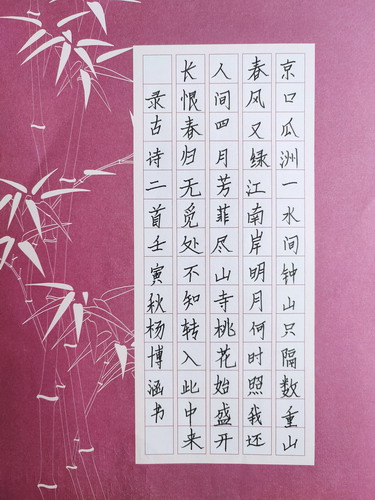 京口瓜洲一水间钟山只隔数重山
春风又绿江南岸明月何时照我还
人间四月芳菲尽山寺桃花始盛开
长恨春归无觅处不知转入此中来
录古诗二首壬寅秋杨博涵书